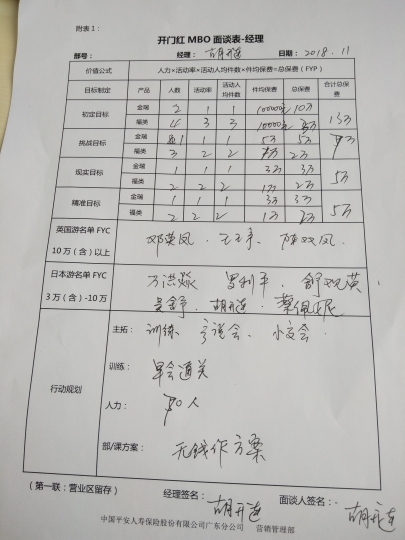 附表1：
开门红 MBO 面谈表-经理
部号： 经理：胡开连 日期：2018.11
价值公式 人力×活动率×活动人均件数×件均保费=总保费（FYP）
目标制定 产品 人数 活动率 活动人均件数 件均保费 总保费 合计总保费
初定目标 金瑞 2 1 1 100000元 10万
福类 4 3 3 10000元 3万 13万
挑战目标 金瑞 1 1 1 5万 5万
福类 3 2 2 1万 2万 7万
现实目标 金瑞 1 1 1 3万 3万
福类 2 2 2 1万 2万 5万
精准目标 金瑞 1 1 1 3万 3万
福类 2 2 2 1万 2万 5万
英国游名单 FYC
10万（含）以上
邓英凤.
日本游名单 FYC
3万（含）-10万
罗利平.
胡开连.
行动规划
主拓： 训练
训练： 早会通关
人力： 人
部/课方案： 无钱作方案
（第一联：营业区留存） 经理签名：胡开连 面谈人签名：胡开连
中国平安人寿保险股份有限公司广东分公司 营销管理部